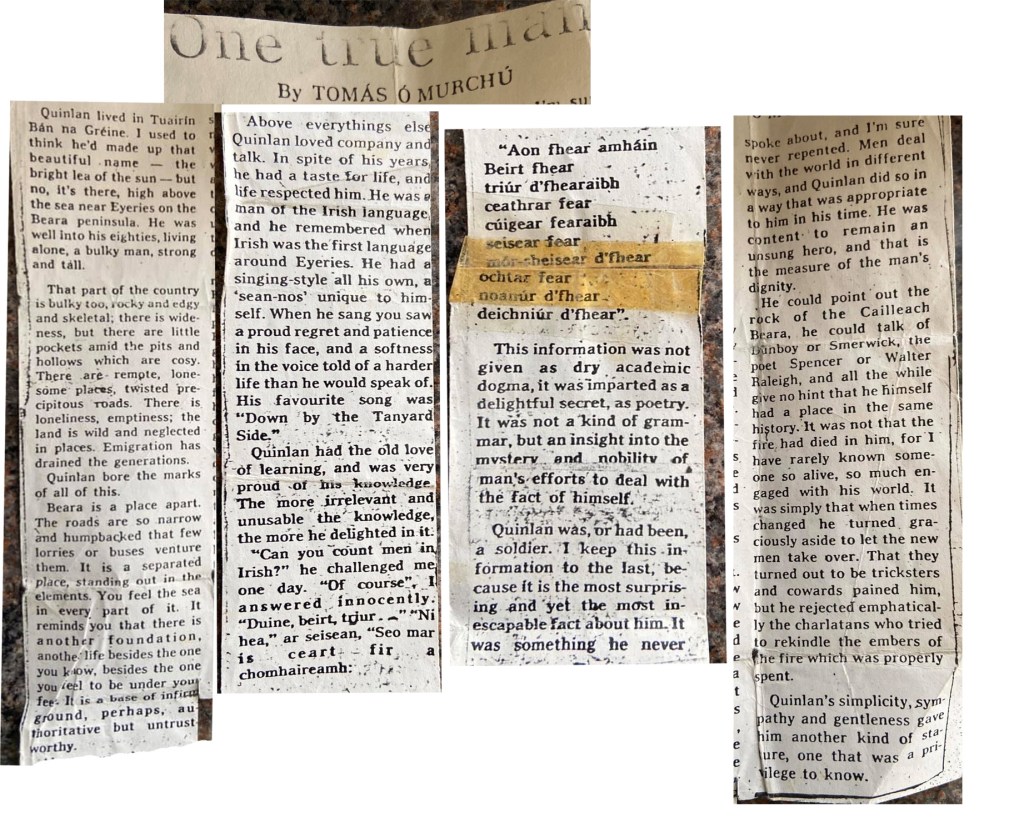 One true man
By TOMÁS Ó MURCHÚ
Quinlan lived in Tuairín
Bán na Gréine. I used to
think he'd made up that
beautiful name — the
bright lea of the sun — but
no, it's there, high above
the sea near Eyeries on the
Beara peninsula. He was
well into his eighties, living
alone, a bulky man, strong
and tall.
That part of the country
is bulky too, rocky and edgy
and skeletal; there is wide-
ness, but there are little
pockets amid the pits and
hollows which are cosy.
There are remote, lone-
some places, twisted pre-
cipitous roads. There is
loneliness, emptiness; the
land is wild and neglected
in places. Emigration has
drained the generations.
Quinlan bore the marks
of all of this.
Beara is a place apart.
The roads are so narrow
and humpbacked that few
lorries or buses venture
them. It is a separated
place, standing out in the
elements. You feel the sea
in every part of it. It
reminds you that there is
another foundation,
anothe life besides the one
you know, besides the one
you feel to be under your
fee. It is a base of infirm
ground, perhaps, au-
thoritative but untrust-
worthy.
Above everythings else
Quinlan loved company and
talk. In spite of his years
he had a taste for life, and
life respected him. He was a
man of the Irish language
and he remembered when
Irish was the first language
around Eyeries. He had a
singing-style all his own, a
'sean-nos' unique to him-
self. When he sang you saw
a proud regret and patience
in his face, and a softness
in the voice told of a harder
life than he would speak of.
His favourite song was
"Down by the Tanyard
Side."
Quinlan had the old love
of learning, and was very
proud of his knowledge.
The more irrelevant and
unusable the knowledge,
the more he delighted in it.
"Can you count men in
Irish?" he challenged me
one day. "Of course", I
answered innocently.
"Duine, beirt, triur. . ." "Ni
hea," ar seisean, "Seo mar
is ceart fir a
chomhaireamh:
"Aon fhear amháin
Beirt fhear
triúr d'fhearaibh
ceathrar fear
cúigear fearaibh
seisear fear
mór-sheisear d'fhear
ochtar fear
noanúr d'fhear
deichniúr d'fhear".
This information was not
given as dry academic
dogma, it was imparted as a
delightful secret, as poetry.
It was not a kind of gram-
mar, but an insight into the
mystery and nobility of
man's efforts to deal with
the fact of himself.
Quinlan was, or had been,
a soldier. I keep this in-
formation to the last, be-
cause it is the most surpris-
ing and yet the most in-
escapable fact about him. It
was something he never
spoke about, and I'm sure
never repented. Men deal
with the world in different
ways, and Quinlan did so in
a way that was appropriate
to him in his time. He was
content to remain an
unsung hero, and that is
the measure of the man's
dignity.
He could point out the
rock of the Cailleach
Beara, he could talk of
Dunboy or Smerwick, the
poet Spencer or Walter
Raleigh, and all the while
give no hint that he himself
had a place in the same
history. It was not that the
fire had died in him, for I
have rarely known some-
one so alive, so much en-
gaged with his world. It
was simply that when times
changed he turned gra-
ciously aside to let the new
men take over. That they
turned out to be tricksters
and cowards pained him,
but he rejected emphatical-
ly the charlatans who tried
to rekindle the embers of
the fire which was properly
spent.
Quinlan's simplicity, sym-
pathy and gentleness gave
him another kind of sta-
ture, one that was a pri-
vilege to know.